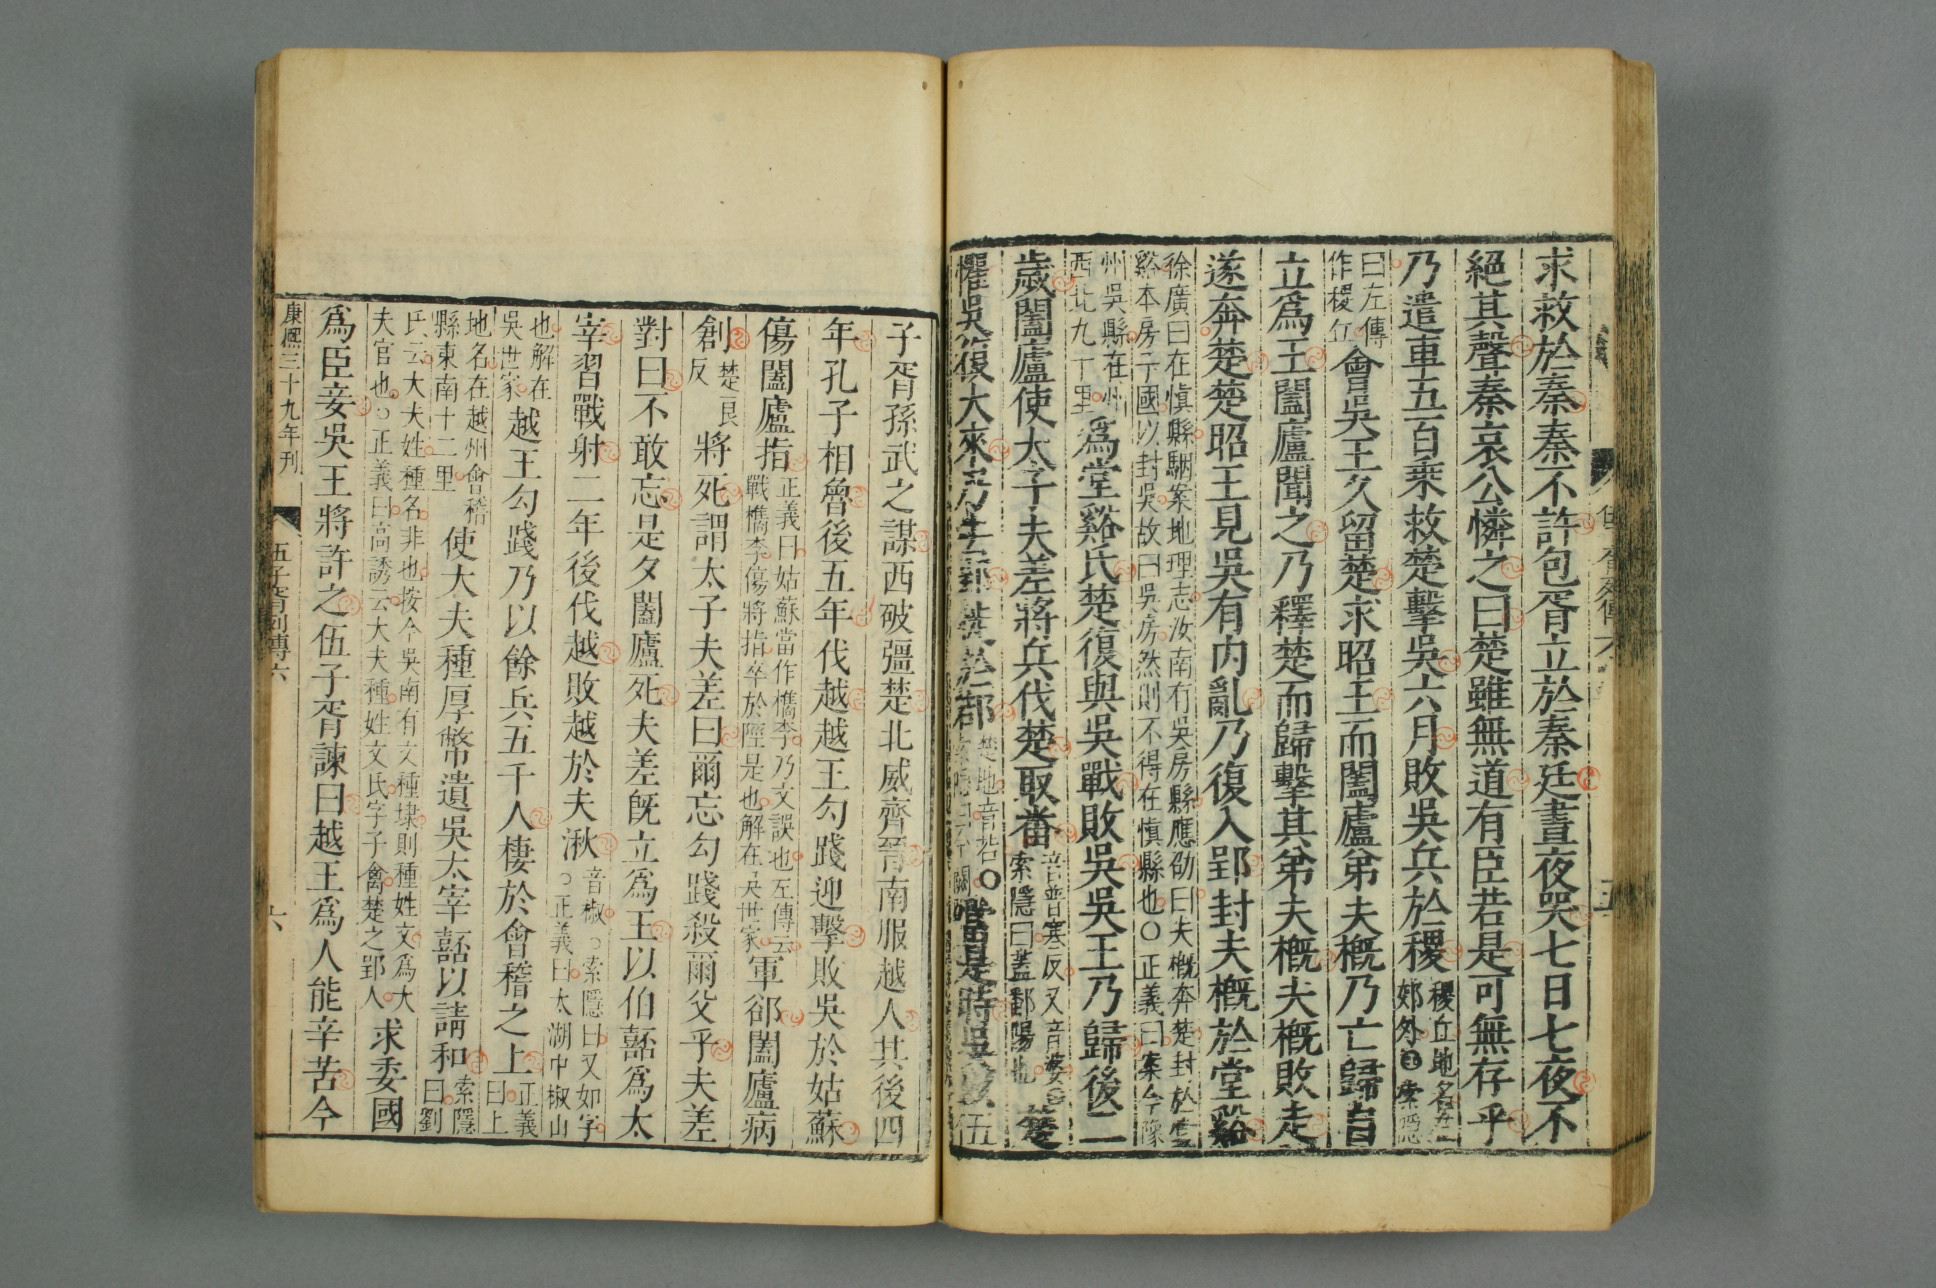 求救於秦秦不許包胥立於秦廷晝夜哭七日七夜不
絕其聲秦哀公憐之曰楚雖無道有臣若是可無存乎
乃遣車五百乘救楚擊吳六月敗吳兵於稷稷丘地名
郊外索隱
曰左傳
作稷丘會吳王久留楚求昭王而闔廬弟夫概乃亡歸自
立爲王闔廬聞之乃釋楚而歸擊其弟夫概夫概敗走
遂奔楚楚昭王見吳有內亂乃復入郢封夫概於堂谿
徐廣曰在愼縣駰案地理志汝南有吳房縣應劭曰夫概奔楚封於堂
谿本房子國以封吳故曰吳房然則不得在愼縣也〇正義曰案今豫
州吳縣在州
西北九十里爲堂谿氏楚復與吳戰敗吳吳王乃歸後二
歲闔廬使太子夫差將兵伐楚取番音普寒反又音婆
索隱曰蓋鄱陽也楚
懼吳復大來乃去郢徙於鄀楚地音若〇
當是時吳以伍
子胥孫武之謀西破彊楚北威齊晉南服越人其後四
年孔子相魯後五年伐越越王勾踐迎擊敗吳於姑蘇
傷闔廬指正義曰姑蘇當作檇李乃文誤也左傳云
戰檇李傷將指卒於陘是也解在吳世家軍郤闔廬病
創楚良
反將死謂太子夫差曰爾忘勾踐殺爾父乎夫差
對曰不敢忘是夕闔廬死夫差旣立爲王以伯嚭爲太
宰習戰射二年後伐越敗越於夫湫音椒〇索隱曰又如字
〇正義曰太湖中椒山
也解在
吳世家越王勾踐乃以餘兵五千人棲於會稽之上正義
曰上
地名在越州會稽
縣東南十二里使大夫種厚幣遺吳太宰嚭以請和索隱
曰劉
氏云大夫姓種名非也按今吳南有文種埭則種姓文爲大
夫官也〇正義曰高誘云大夫種姓文氏字子禽楚之郢人求委國
爲臣妾吳王將許之伍子胥諫曰越王爲人能辛苦今
康熙三十九年刊
伍子胥列傳六
六